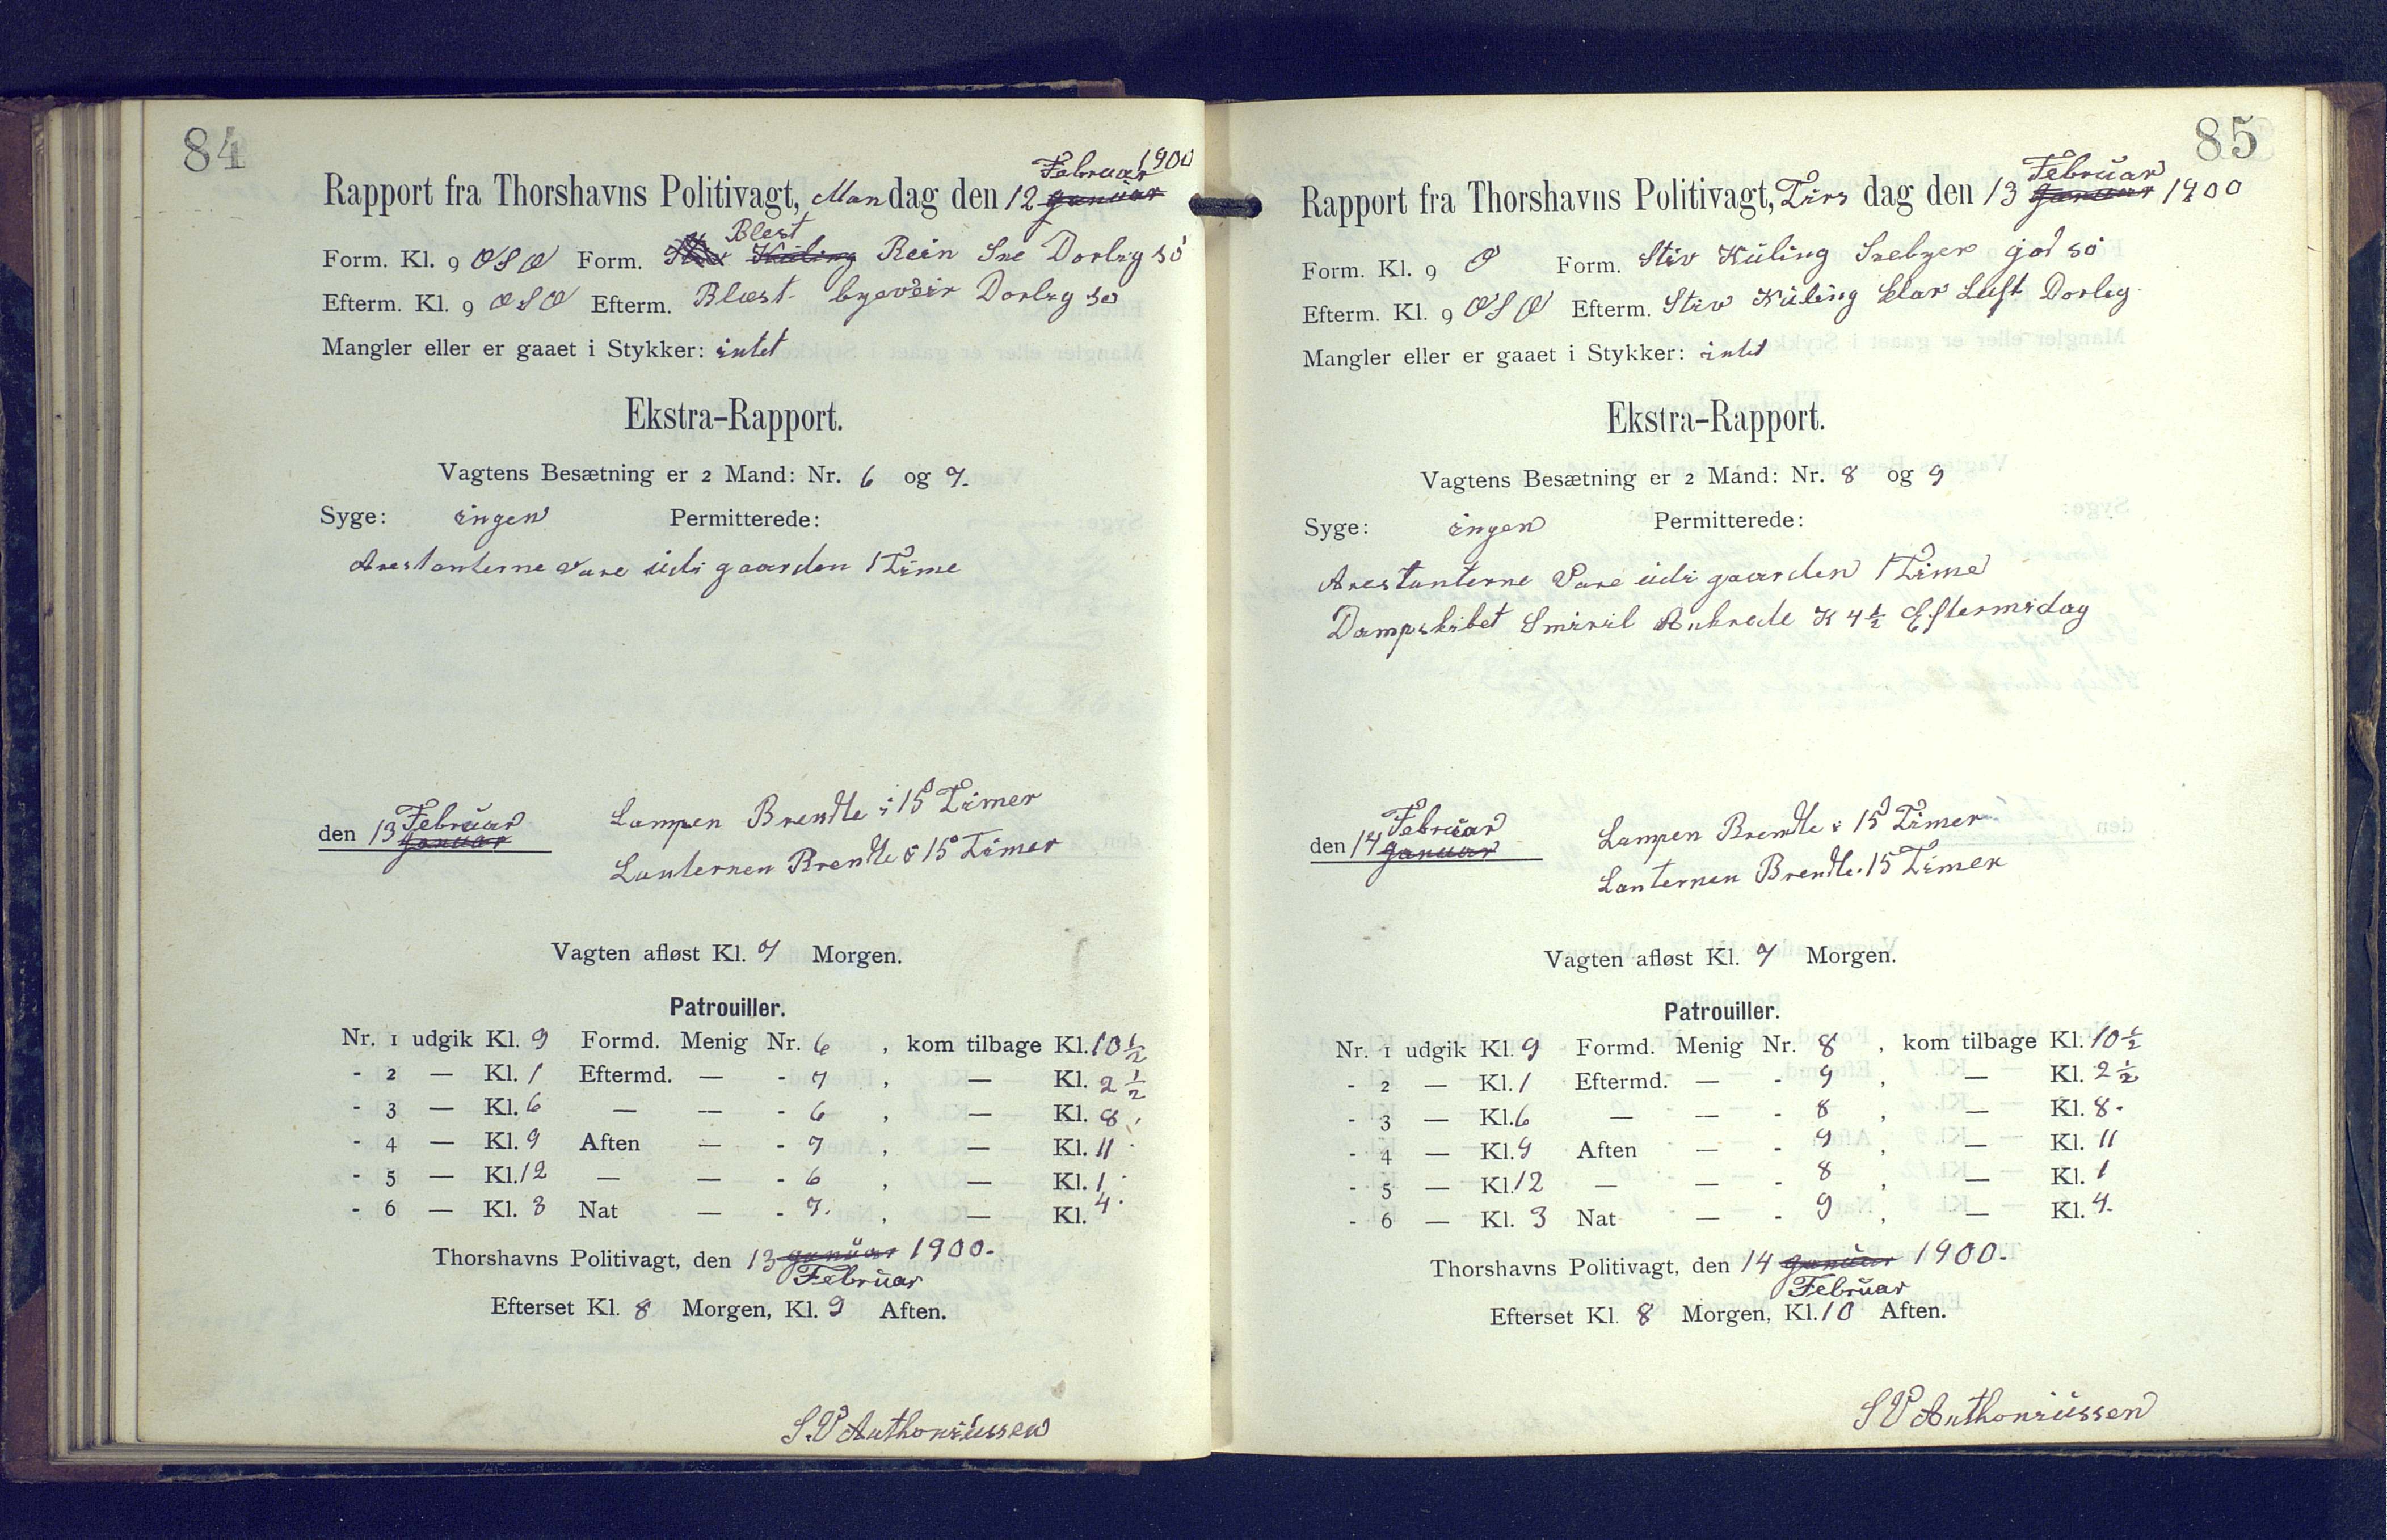 84
Februar 1900
Rapport fra Thorshavns Politivagt, Mandag den 12 Januar
Blest
Form. Kl. 9 OSO Form. Stiv Kuling Rein Sne Dorlig sö
Efterm. Kl. 9 OSO Efterm. Blæst byeveir Dorlig sø
Mangler eller er gaaet i Stykker: intet
Ekstra-Rapport.
Vagtens Besætning er 2 Mand: Nr. 6 og 7.
Syge: ingen Permitterede:
Arestanterne Vare üdi gaarden 1 Time
den 13 Februar Januar
Lampen Brendte i 15 Timer
Lanternen Brendte i 15 Timer
Vagten afløst Kl. 7 Morgen.
Patrouiller.
Nr. 1 udgik Kl. 9 Formd. Menig Nr. 6 , kom tilbage Kl. 10 ½
- 2 — Kl. 1 Eftermd. — - 7 , — Kl. 2 ½
- 3 — Kl. 6 — — - 6 , — Kl. 8
- 4 — Kl. 9 Aften — - 7 , — Kl. 11
- 5 — Kl. 12 — — - 6 , — Kl. 1
- 6 — Kl. 3 Nat — - 7. , — Kl. 4.
Thorshavns Politivagt, den 13 Janüar 1900.
Februar
Efterset Kl. 8 Morgen, Kl. 9 Aften.
S.V Anthoniüssen
85
Februar
Rapport fra Thorshavns Politivagt, Tirs dag den 13 Januar 1900
Form. Kl. 9 O Form. Stiv Küling Snebyer god sö
Efterm. Kl. 9 OSO Efterm. Stiv Küling klar Luft Dorlig
Mangler eller er gaaet i Stykker: intet
Ekstra-Rapport.
Vagtens Besætning er 2 Mand: Nr. 8 og 9
Syge: ingen Permitterede:
Arestanterne Vare üdi gaarden 1 Time
Dampskibet Smiril Ankrede K 4 ½ Eftermidag
den 14 Februar Januar
Lampen Brendte i 15 Timer
Lanternen Brendte. 15 Timer
Vagten afløst Kl. 7 Morgen.
Patrouiller.
Nr. 1 udgik Kl. 9 Formd. Menig Nr. 8 , kom tilbage Kl. 10 ½
- 2 — Kl. 1 Eftermd. — - 9 , — Kl. 2 ½
- 3 — Kl. 6 — — - 8 , — Kl. 8.
- 4 — Kl. 9 Aften — - 9 , — Kl. 11
- 5 — Kl. 12 — — - 8 , — Kl. 1
- 6 — Kl. 3 Nat — - 9 , — Kl. 4.
Thorshavns Politivagt, den 14 Janüar 1900.
Februar
Efterset Kl. 8 Morgen, Kl. 10 Aften.
S V Anthoniüssen